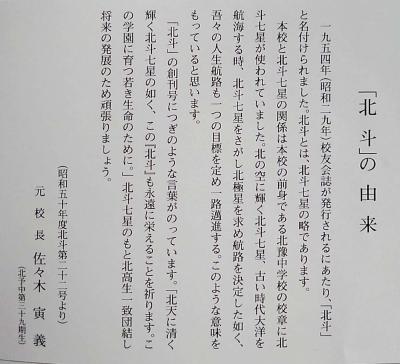 「北斗」の由来
一九五四年（昭和二九年）校友会誌が発行されるにあたり、「北斗」
と名付けられました。北斗とは、北斗七星の略であります。
本校と北斗七星の関係は本校の前身である北豫中学校の校章に北
斗七星が使われていました。北の空に輝く北斗七星、古い時代大洋を
航海する時、北斗七星をさがし北極星を求め航路を決定した如く、
吾々の人生航路も一つの目標を定め一路邁進する。このような意味を
もっていると思います。
「北斗」の創刊号につぎのような言葉がのっています。「北天に清く
輝く北斗七星の如く、この『北斗』も永遠に栄えることを祈ります。こ
の学園に育つ若き生命のために。」北斗七星のもと北高生一致団結し
将来の発展のため頑張りましょう。
（昭和五十年度北斗第二十二号より）
元校長 佐々木 寅義
（北予中第三十九期生）